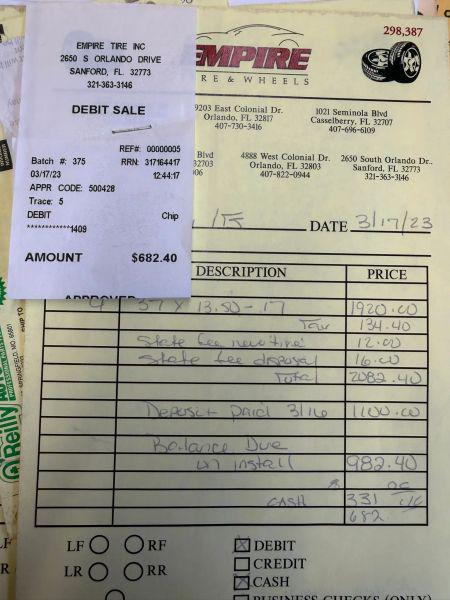 EMPIRE TIRE INC
2650 S ORLANDO DRIVE
SANFORD, FL 32773
321-363-3146
DEBIT SALE
REF#: 00000005
Batch #: 375 RRN: 317164417
03/17/23 12:44:17
APPR CODE: 500428
Trace: 5
DEBIT Chip
************1409
AMOUNT $682.40
APPROVED
298,387
EMPIRE
RE & WHEELS
9203 East Colonial Dr.
Orlando, FL 32817
407-730-3416
1021 Seminola Blvd
Casselberry, FL 32707
407-696-6109
Blvd
32703
006
4888 West Colonial Dr.
Orlando, FL 32803
407-822-0944
2650 South Orlando Dr.
Sanford, FL 32773
321-363-3146
DATE 3/17/23
DESCRIPTION PRICE
4 37 X 13.50-17 1920.00
Tax 134.40
State fee new tire 12.00
State fee disposal 16.00
Total 2082.40
Deposit paid 3/16 1100.00
Balance Due
on install 982.40
CASH 331
682
LF RF
LR RR
DEBIT
CREDIT
CASH
BUSINESS CHECKS (ONLY)
O'Reilly
PROFESSIONAL PARTS PEOPLE
SPRINGFIELD, MO
SHIP TO